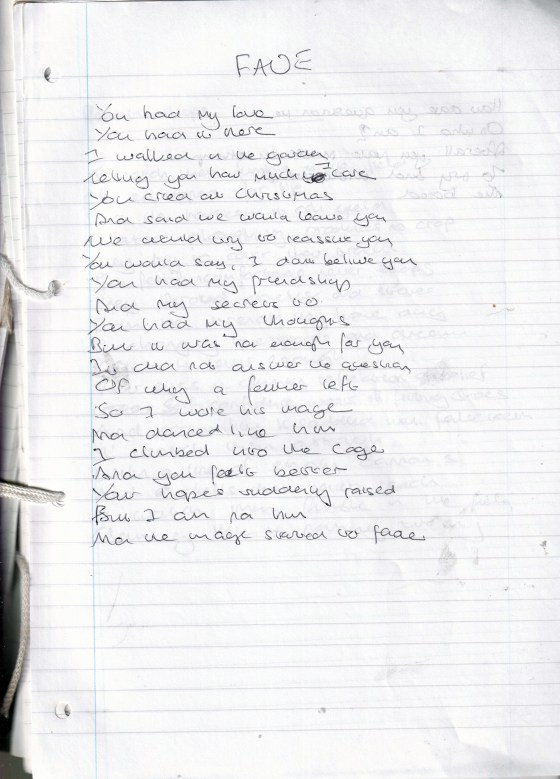 FADE
You had my love
You had it here
I walked in the garden
Telling you how much I care
You cried at Christmas
And said we would leave you
We would try to reassure you
You would say, I dont believe you
You had my friendship
And my secrets too
You had my thoughts
But it was not enough for you
It did not answer the question
Of why a father left
So I wore his image
And danced like him
I climbed into the cage
And you felt better
Your hopes suddenly raised
But I am not him
And the image started to fade